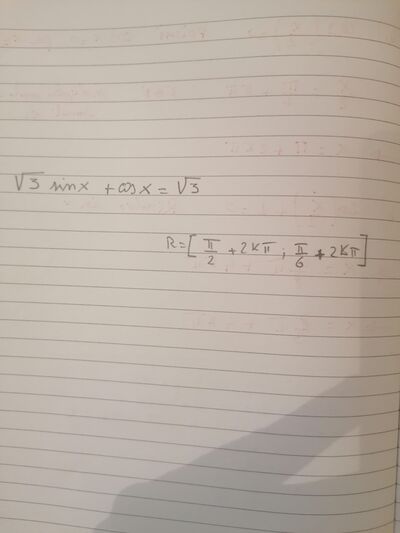 √3 sinx + cosx = √3
R = [π/2 + 2kπ ; π/6 + 2kπ]